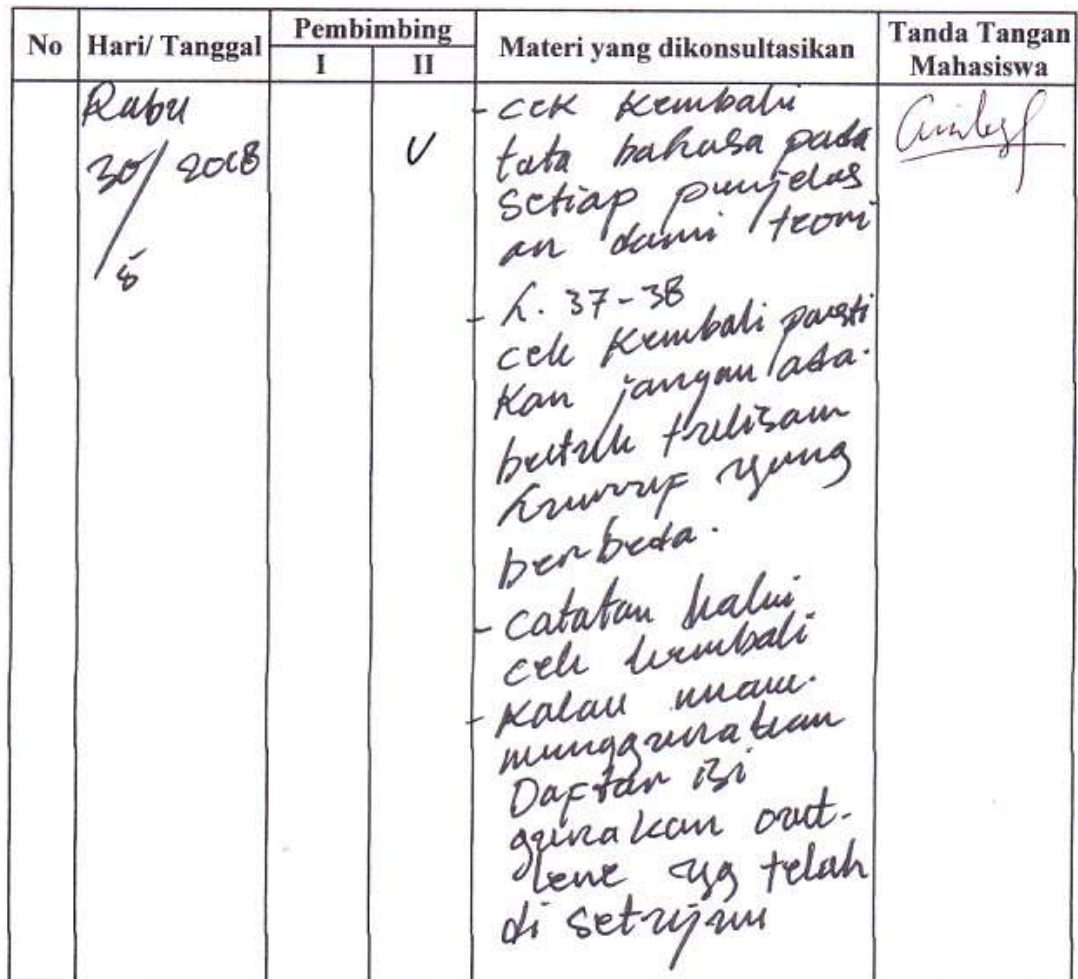 No Hari/ Tanggal Pembimbing Materi yang dikonsultasikan Tanda Tangan Mahasiswa
I II
Rabu
30/ 2018
5
V
- cek kembali
tata bahasa pada
setiap penjelas
an dari teori
- h. 37-38
cek kembali pasti
kan jangan ada
bentuk tulisan
huruf yang
berbeda.
- catatan kaki
cek kembali
- Kalau mau
menggunakan
Daftar isi
gunakan out-
lene yg telah
di setujui